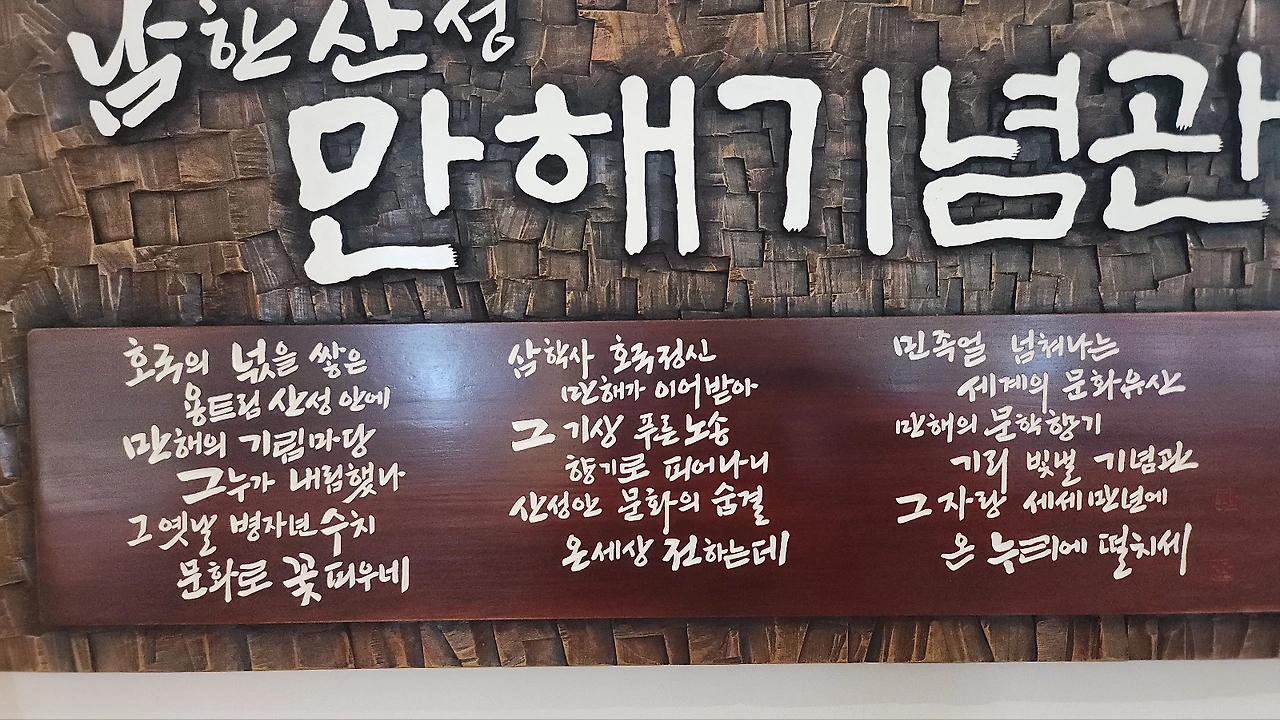 남한산성
만해기념관
호국의 넋을 쌓은
용트림 산성 안에
만해의 기림마당
그누가 내림했나
그 옛날 병자년 수치
문화로 꽃 피우네
삼학사 호국정신
만해가 이어받아
그 기상 푸른 노송
향기로 피어나니
산성안 문화의 숨결
온세상 전하는데
민족얼 넘쳐나는
세계의 문화유산
만해의 문학향기
기리 빛낼 기념관
그 자랑 세세만년에
온 누리에 떨치세